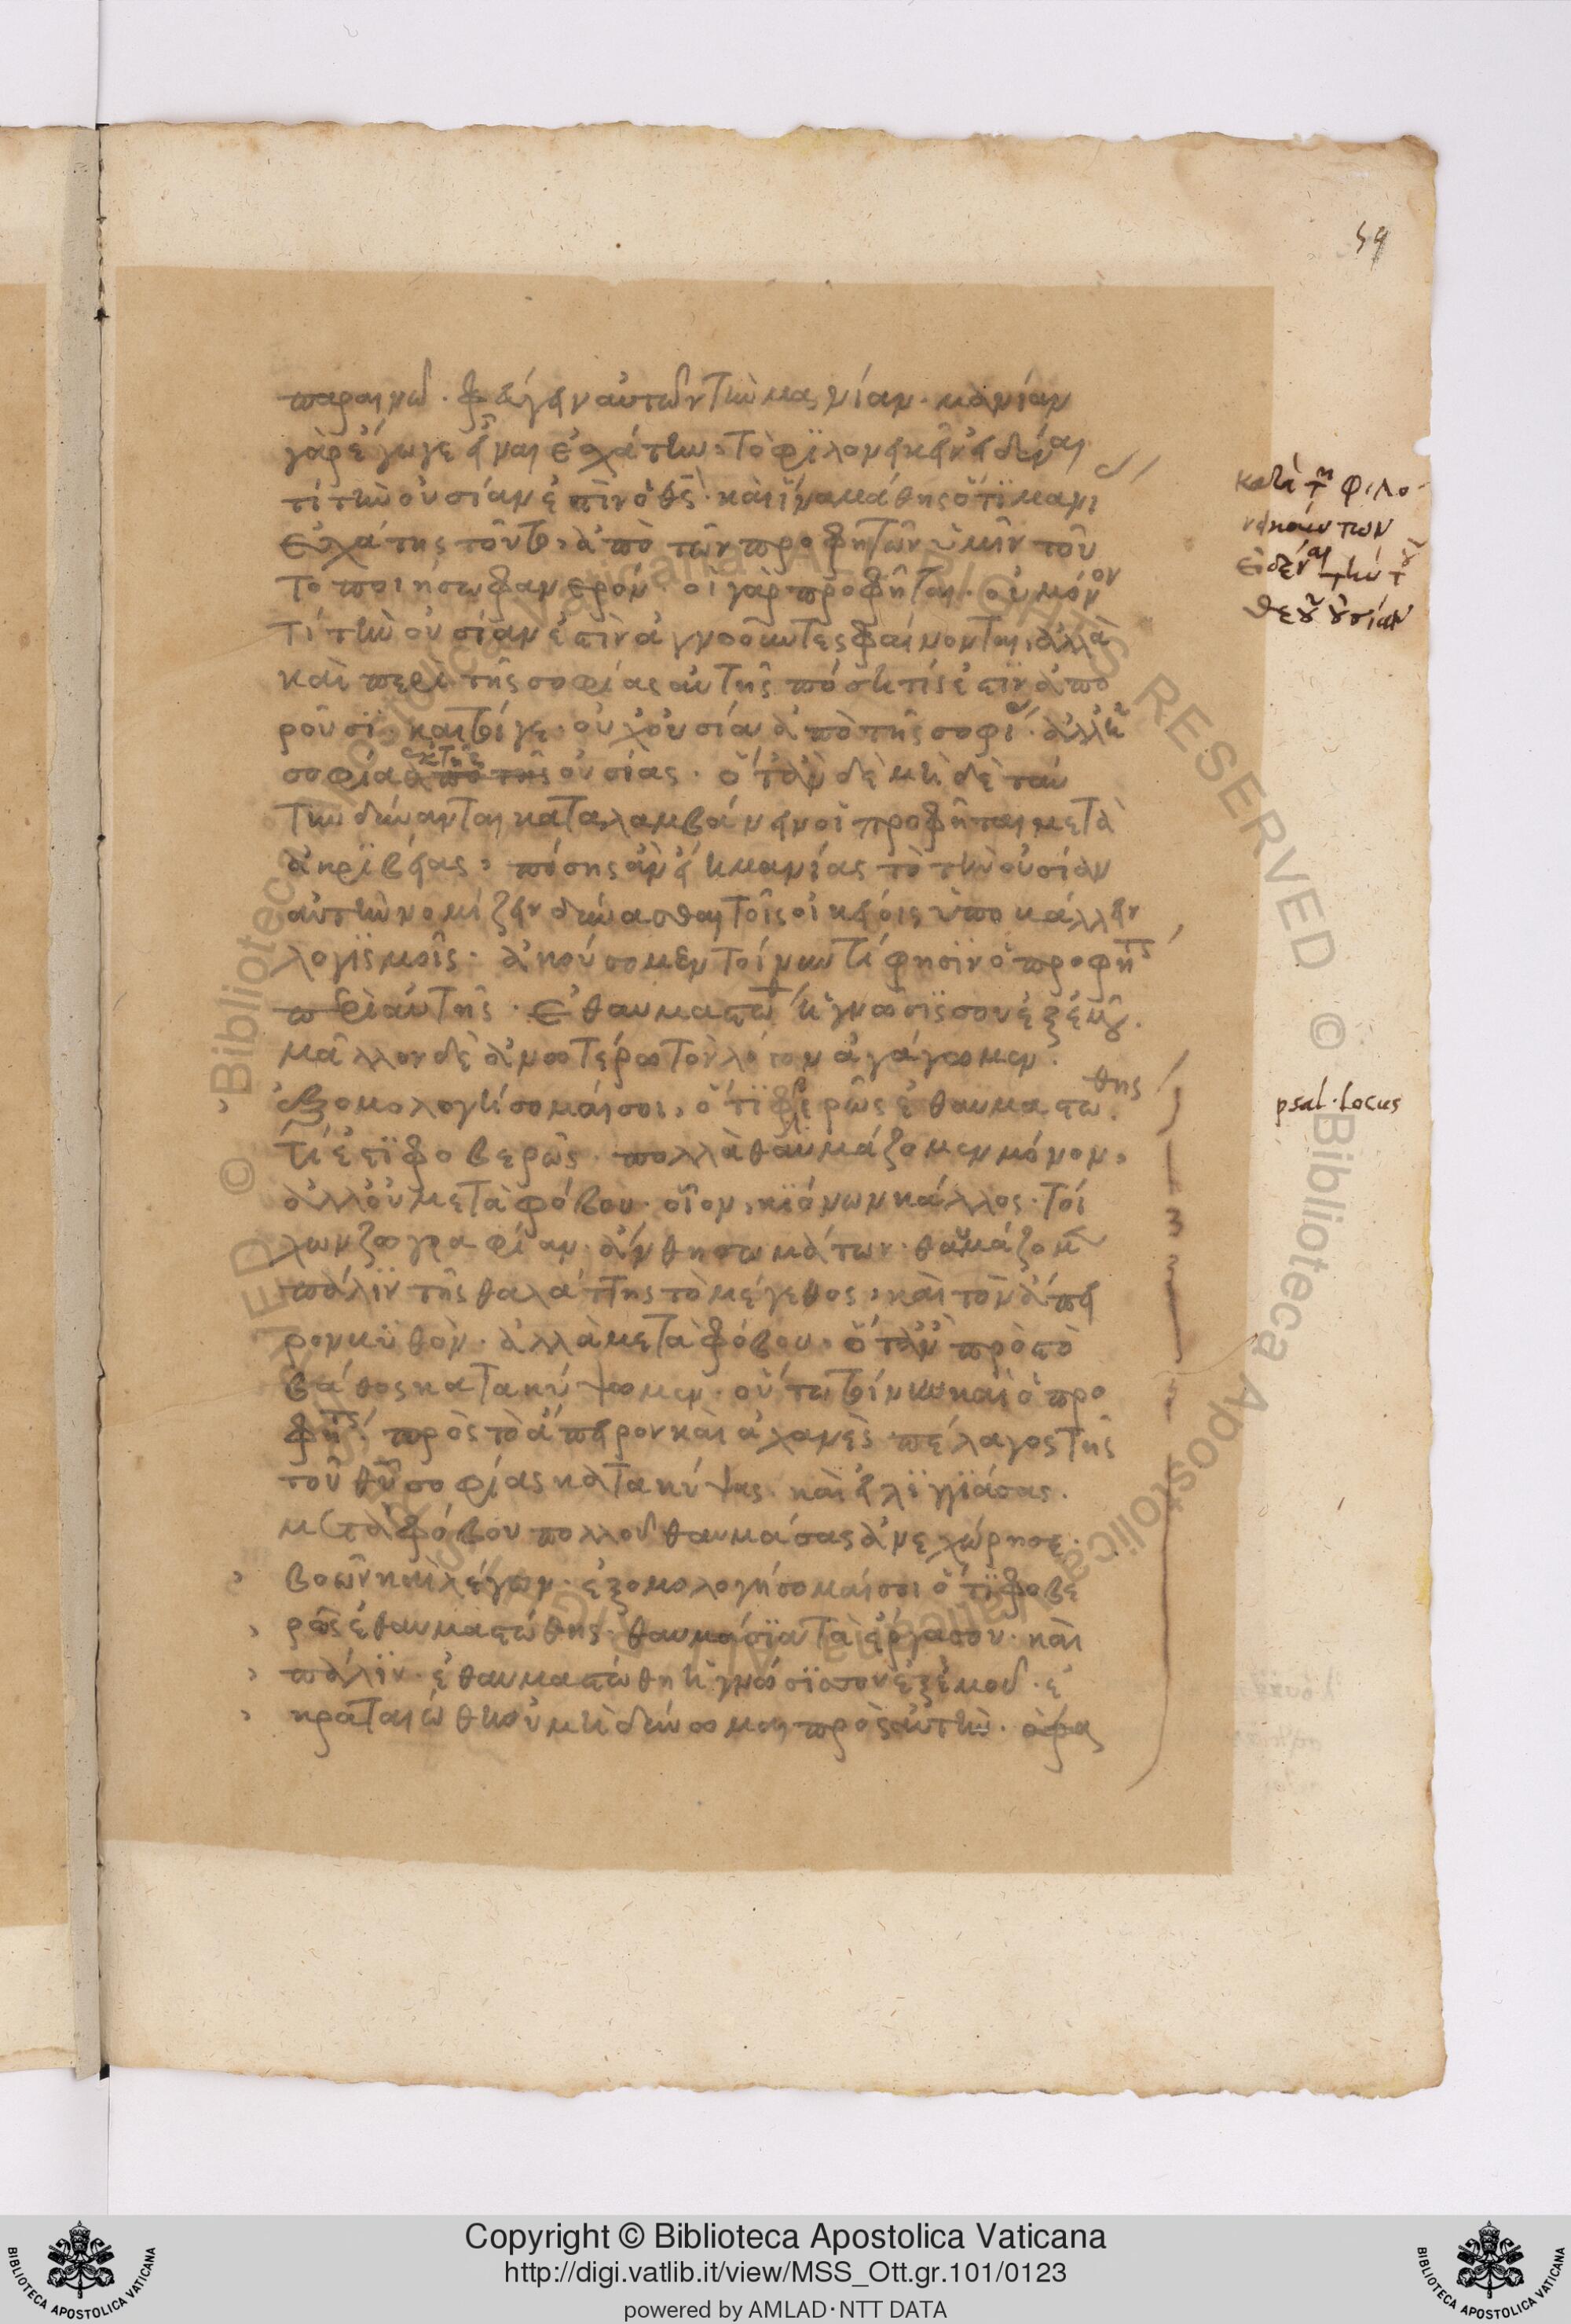 59
παραινῶ. φεύγειν αὐτῶν τὴν μανίαν. μανίαν
γὰρ ἔγωγε εἶναι ἐσχάτην, τὸ φϊλονεικεῖν εἰδέναι
τί τὴν οὐσίαν ἐστὶν ὁ θς. καὶ ἵνα μάθης ὅτϊ μανί
ἐσχάτης τοῦτο, ἀπὸ τῶν προφητῶν ὑμῖν τοῦ
το ποιήσω φανερόν. οἱ γὰρ προφῆται. οὐ μόνον
τί τὴν οὐσίαν ἐστὶν ἀγνοοῦντες φαίνονται, ἀλλὰ
καὶ περὶ τῆς σοφίας αὐτῆς πόση τίς ἐστϊν ἀπο
ροῦσϊ. καίτοιγε οὐχ οὐσία ἀπὸ τῆς σοφί. ἀλλ ἡ
σοφία ἐκ τῆς οὐσίας. ὅταν δὲ μηδὲ ταύ
την δύνανται καταλαμβάνειν οἱ προφῆται μετὰ
ἀκρϊβείας, πόσης ἂν εἴη μανίας τὸ τὴν οὐσίαν
αὐτὴν νομίζειν δύνασθαι τοῖς οἰκείοις ὑποβάλλειν
λογϊσμοῖς. ἀκούσωμεν τοίνυν τί φησὶν ὁ προφήτς
περὶ αὐτῆς. ἐθαυμαστώθη ἡ γνῶσϊς σου ἐξ ἐμοῦ.
μᾶλλον δὲ ἀνωτέρω τὸν λόγον ἀγάγωμεν.
ἐξομολογήσομαί σοι, ὅτϊ φοβερῶς ἐθαυμαστώθης
τί ἐστϊ φοβερῶς. πολλὰ θαυμάζομεν μόνον,
ἀλλ οὐ μετὰ φόβου. οἷον, κϊόνων κάλλος. τοί
χων ζωγραφίαν. ἄνθη σωμάτων. θαυμάζομεν
πάλϊν τῆς θαλάττης τὸ μέγεθος, καὶ τὸν ἄπει
ρον βυθόν. ἀλλὰ μετὰ φόβου. ὅταν πρὸς τὸ
βάθος κατακύψωμεν. οὕτω τοίνυν καὶ ὁ προ
φήτς. πρὸς τὸ ἄπειρον καὶ ἀχανὲς πέλαγος τῆς
τοῦ θυ σοφίας κατακύψας. καὶ εἰλϊγγϊάσας.
μετὰ φόβου πολλοῦ θαυμάσας ἀνεχώρησε.
βοῶν καὶ λέγων. ἐξομολογήσομαί σοι ὅτϊ φοβε
ρῶς ἐθαυμαστώθης. θαυμάσϊα τὰ ἔργα σου. καὶ
πάλϊν. ἐθαυμαστώθη ἡ γνῶσϊς σου ἐξ ἐμοῦ. ἐ
κραταιώθη οὐ μὴ δύνωμαι πρὸς αὐτήν. ὁρᾶς
κατὰ τ φιλο
νεικούντων
εἰδέναι τὴν τοῦ
θεοῦ οὐσίαν
psal. locus
© Biblioteca Apostolica Vaticana ALL RIGHTS RESERVED © Biblioteca Apostolica Vaticana ALL RIGHTS RESERVED
Copyright © Biblioteca Apostolica Vaticana
http://digi.vatlib.it/view/MSS_Ott.gr.101/0123
powered by AMLAD·NTT DATA
BIBLIOTECA APOSTOLICA VATICANA
BIBLIOTECA APOSTOLICA VATICANA